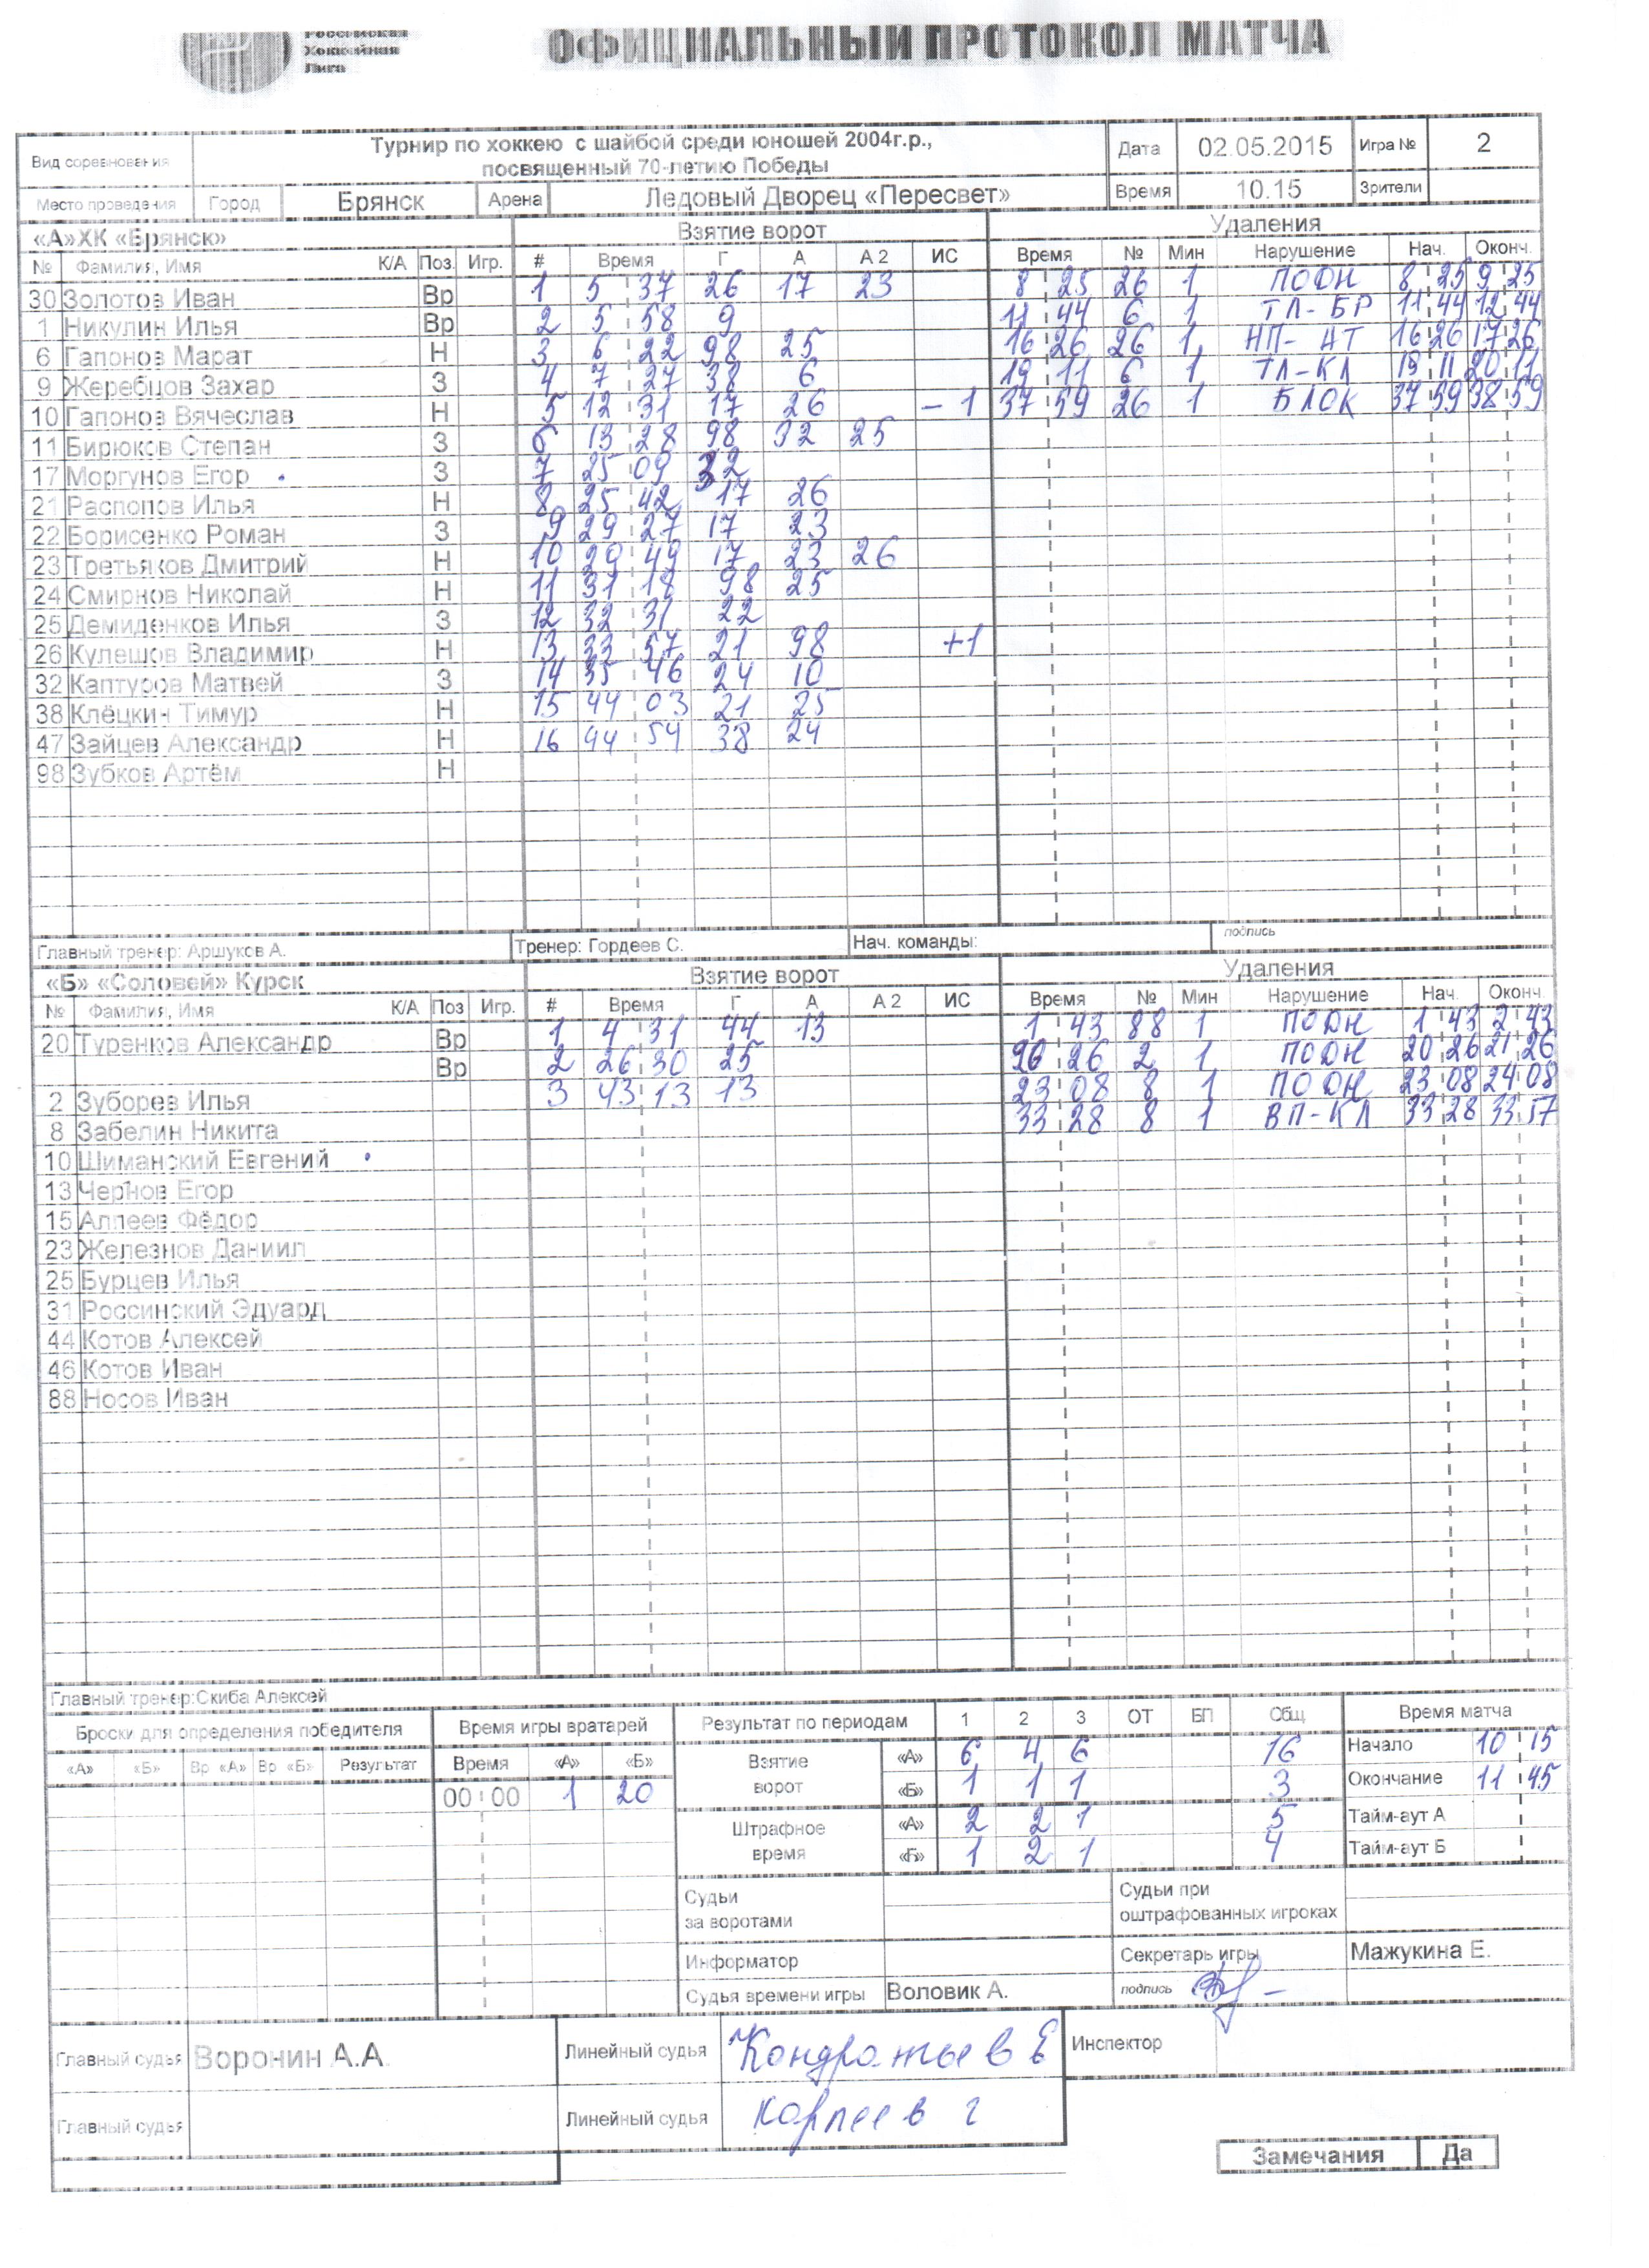 Российская
Хоккейная
Лига
ОФИЦИАЛЬНЫЙ ПРОТОКОЛ МАТЧА
Вид соревнования Турнир по хоккею с шайбой среди юношей 2004г.р., посвященный 70-летию Победы Дата 02.05.2015 Игра № 2
Место проведения Город Брянск Арена Ледовый Дворец «Пересвет» Время 10.15 Зрители
«А»ХК «Брянск» Взятие ворот Удаления
№ Фамилия, Имя К/А Поз Игр. # Время Г А А 2 ИС Время № Мин Нарушение Нач. Оконч.
30 Золотов Иван Вр 1 5 37 26 17 23 8 25 26 1 ПОДН 8 25 9 25
1 Никулин Илья Вр 2 5 58 9 11 44 6 1 ТЛ-БР 11 44 12 44
6 Гапонов Марат Н 3 6 22 98 25 16 26 26 1 НП-АТ 16 26 17 26
9 Жеребцов Захар З 4 7 27 38 6 19 11 6 1 ТЛ-КЛ 19 11 20 11
10 Гапонов Вячеслав Н 5 12 31 17 26 -1 37 59 26 1 БЛОК 37 59 38 59
11 Бирюков Степан З 6 13 28 98 32 25
17 Моргунов Егор З 7 25 09 32
21 Распопов Илья Н 8 25 42 17 26
22 Борисенко Роман З 9 29 27 17 23
23 Третьяков Дмитрий Н 10 29 49 17 23 26
24 Смирнов Николай Н 11 31 18 98 25
25 Демиденков Илья З 12 32 31 22
26 Кулешов Владимир Н 13 33 57 21 98 +1
32 Каптуров Матвей З 14 35 46 24 10
38 Клёцкин Тимур Н 15 44 03 21 25
47 Зайцев Александр Н 16 44 54 38 24
98 Зубков Артём Н
Главный тренер: Аршуков А. Тренер: Гордеев С. Нач. команды: подпись
«Б» «Соловей» Курск Взятие ворот Удаления
№ Фамилия, Имя К/А Поз Игр. # Время Г А А 2 ИС Время № Мин Нарушение Нач. Оконч.
20 Туренков Александр Вр 1 4 31 44 13 1 43 88 1 ПОДН 1 43 2 43
Вр 2 26 30 25 20 26 2 1 ПОДН 20 26 21 26
2 Зуборев Илья 3 43 13 13 23 08 8 1 ПОДН 23 08 24 08
8 Забелин Никита 33 28 8 1 ВП-КЛ 33 28 33 57
10 Шиманский Евгений
13 Чернов Егор
15 Аппеев Фёдор
23 Железнов Даниил
25 Бурцев Илья
31 Россинский Эдуард
44 Котов Алексей
46 Котов Иван
88 Носов Иван
Главный тренер:Скиба Алексей
Броски для определения победителя Время игры вратарей Результат по периодам 1 2 3 ОТ БП Общ. Время матча
«А» «Б» Вр «А» Вр «Б» Результат Время «А» «Б» Взятие ворот «А» 6 4 6 16 Начало 10 15
00:00 1 20 «Б» 1 1 1 3 Окончание 11 45
Штрафное время «А» 2 2 1 5 Тайм-аут А
«Б» 1 2 1 4 Тайм-аут Б
Судьи за воротами Судьи при оштрафованных игроках
Информатор Секретарь игры Мажукина Е.
Судья времени игры Воловик А. подпись
Главный судья Воронин А.А. Линейный судья Кондратьев Е Инспектор
Главный судья Линейный судья Корпеев г
Замечания Да